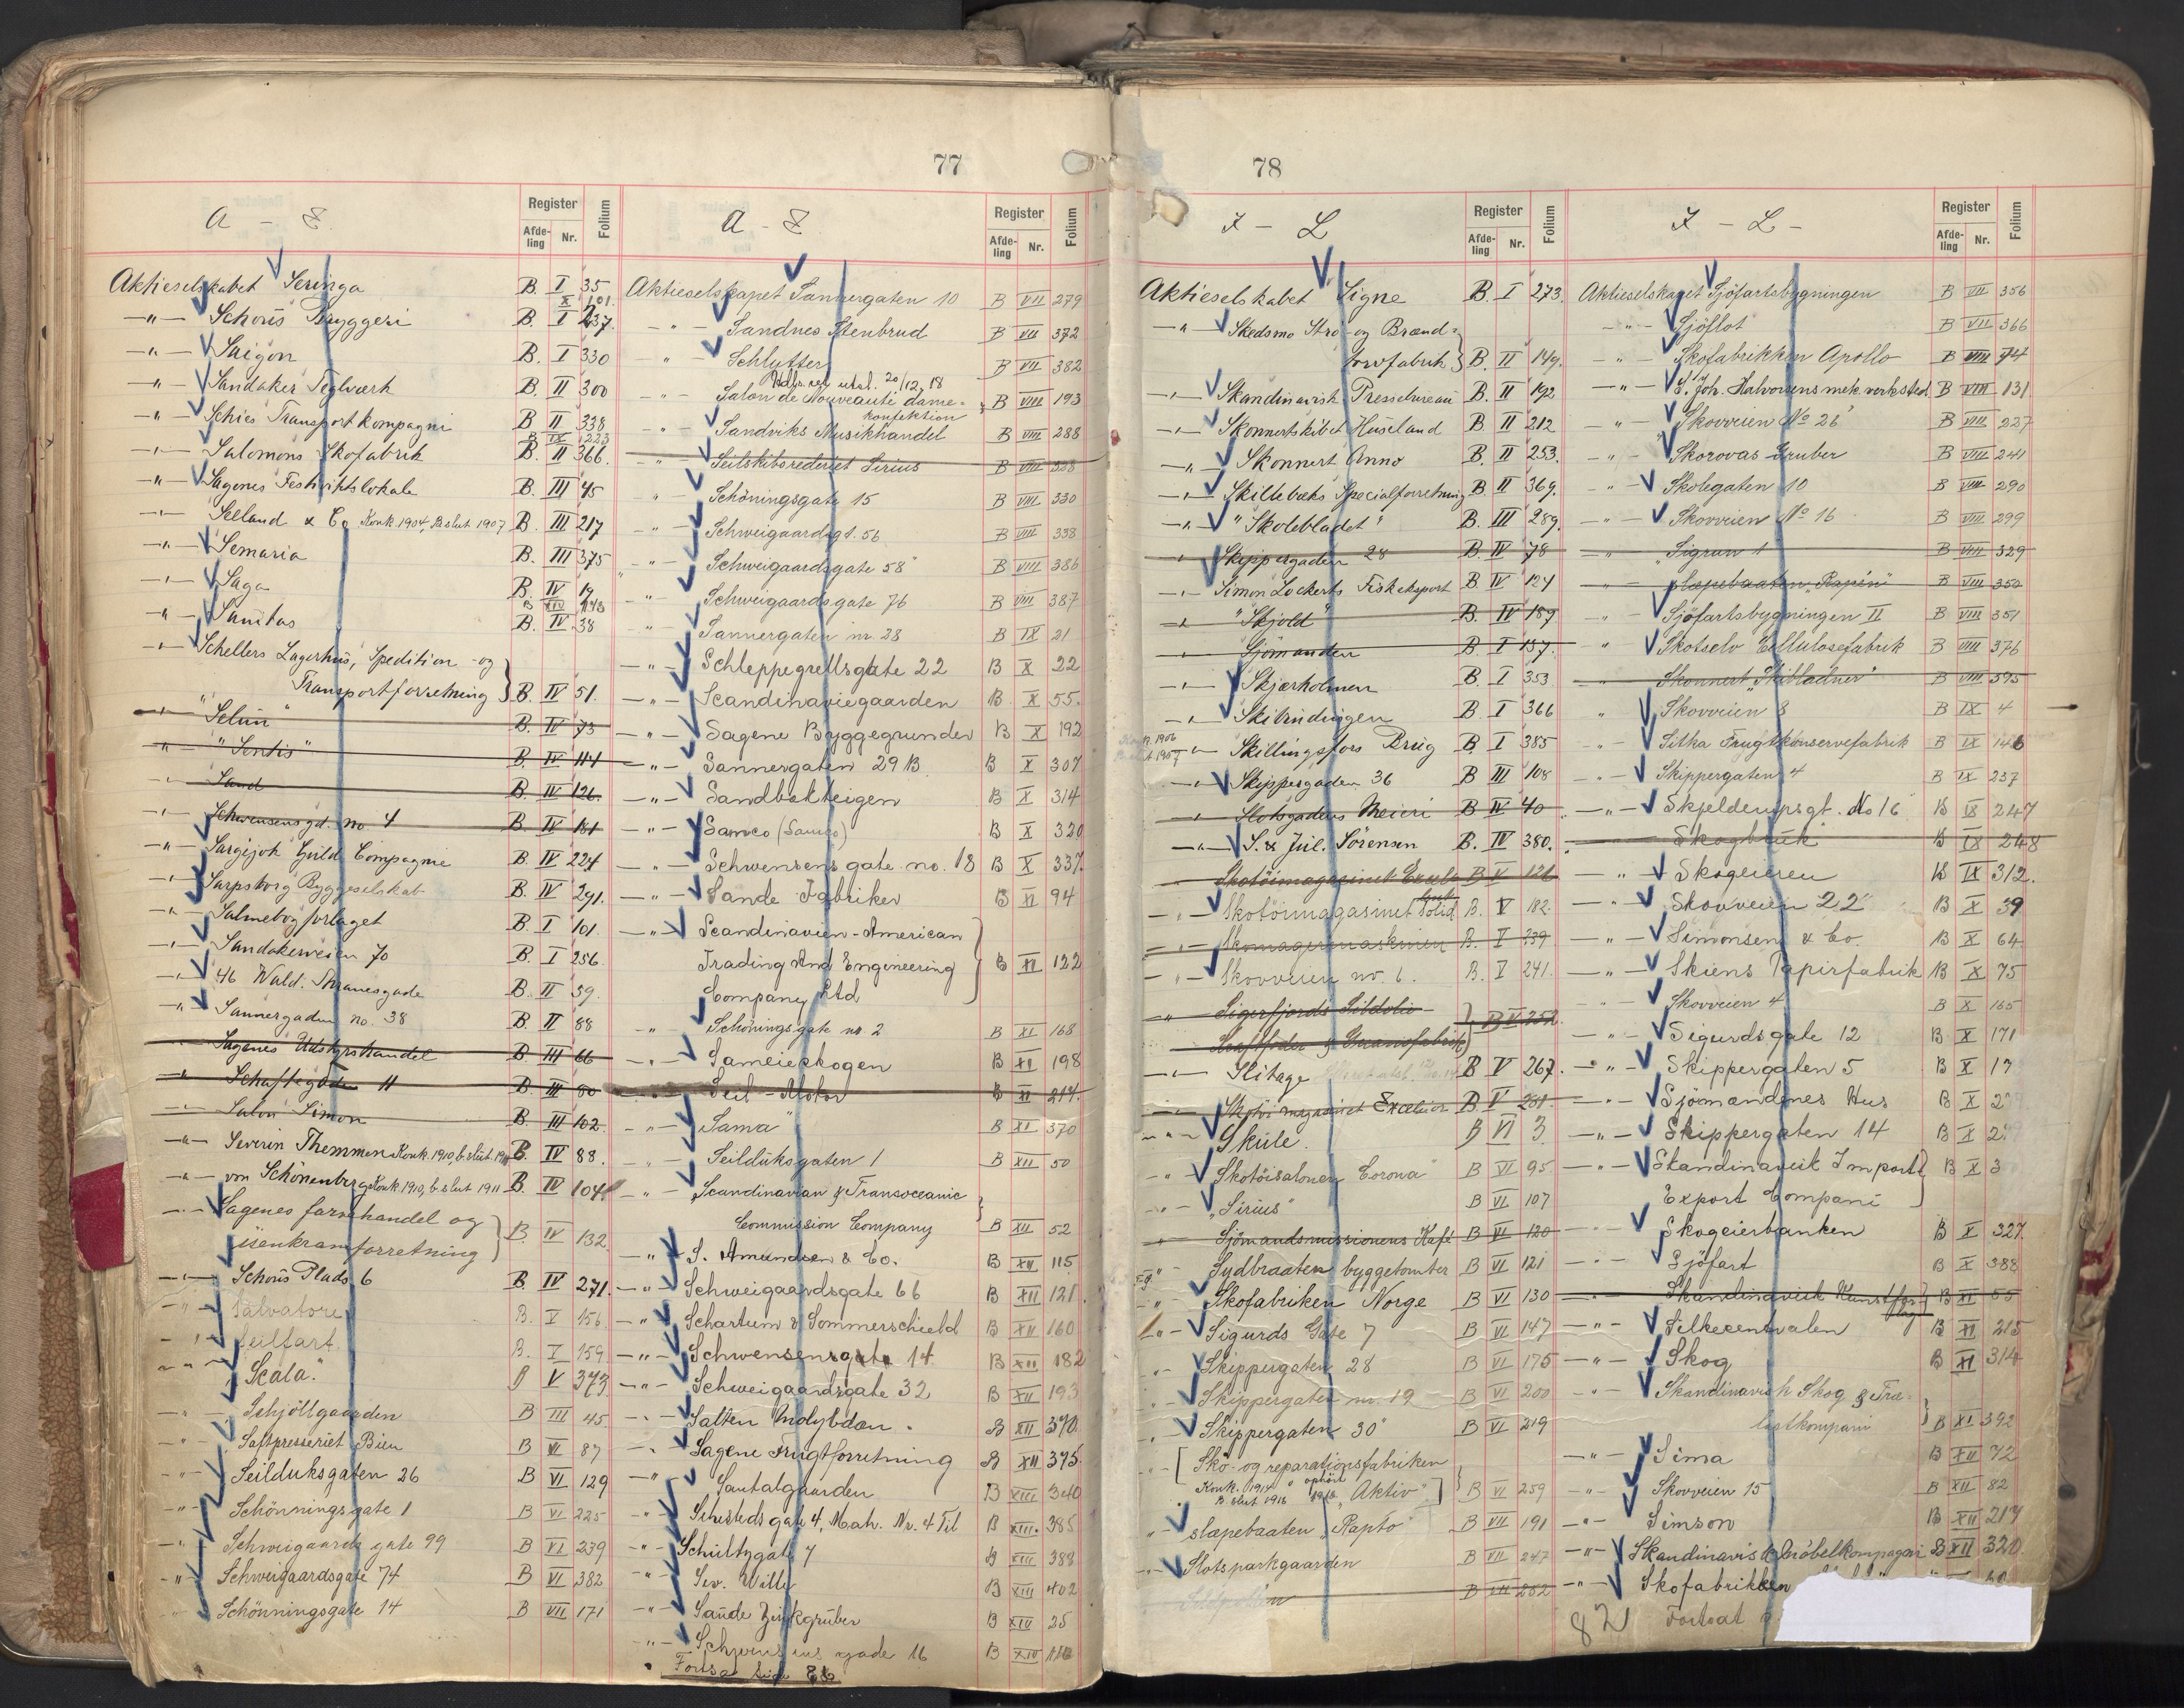 77
A - E
Register
Afde-
ling
Nr.
Folium
Aktieselskabet Seringa B. I 35
X 101.
-"- Schous Bryggeri B. I 237.
-"- Saigon B. I 330
-"- Sandaker Teglværk B. II 300
-"- Schies Transportkompagni B II 338
B IX 223
-"- Salomons Skofabrik B. II 366.
-"- Sagenes Festivitslokale B. III 45
Selland & Co Konk. 1904, B. slut 1907 B. III 217
-"- Semaria B. III 375
-"- Saga B. IV 19
B XIV 143
-"- Sanitas B. IV 38
-"- Schellers Lagerhus, Spedition- og
Transportforretning } B. IV 51.
-"- "Selun" B. IV 73
-"- "Sentis" B. IV 114
-"- Sand B. IV 126.
-"- Schwensensgd. no 4 B. IV 181
-"- Sargijok Guld Compagnie B. IV 224
-"- Sarpsborg Byggeselskab B. IV 291.
-"- Salmebogforlaget B. I 101.
-"- Sandakerveien 70 B. I 256
-"- 46 Wald. Thranesgade B. II 59.
-"- Sannergaden no. 38 B. II 88
Sagenes Udstyrshandel B. III 66
-"- Schaftegdn 11 B. III 80
-"- Salon Simon B. III 102.
-"- Severin Themmen Konk. 1910, b. slut. 1911 B. IV 88.
-"- von Schönenberg Konk. 1910, b. slut 1911 B. IV 104.
-"- Sagenes farvehandel og
isenkramforretning } B IV 132
-"- Schous Plads 6 B. IV 271.
-"- Salvatore B. V 156.
-"- Seilfart. B. V 159
-"- "Scala". B V 373
-"- Schjöllgaarden B III 45.
-"- Saftpresseriet Bien B VI 87
-"- Seilduksgaten 26 B VI 129
-"- Schönningsgate 1 B VI 225
-"- Schweigaards gate 99 B VI 239
-"- Schweigaardsgate 74 B VI 382
Schönningsgate 14 B VII 171
A - E
Register
Afde-
ling
Nr.
Folium
Aktieselskapet Sannergaten 10 B VII 279
-"- Sandnes Stenbrud B VII 372
-"- Schlytter B VII 382
20/12 18
-"- Salon de Nouveauté dame-
konfektion } B VIII 193
-"- Sandviks Musikhandel B VIII 288
-"- Seilskibsrederiet Sirius B VIII 338
-"- Schöningsgate 15 B VIII 330
-"- Schweigaardsgt. 56 B VIII 338
-"- Schweigaardsgate 58" B VIII 386
-"- Schweigaardsgate 76 B VIII 387
-"- Sannergaten nr. 28 B IX 21
-"- Schleppegrellsgate 22 B X 22
-"- Scandinaviegaarden B. X 55.
-"- Sagene Byggegrunder B X 192
-"- Sannergaten 29 B. B X 307
-"- Sandbakteigen B X 314
-"- Samco (Samco) B X 320
-"- Schwensens gate no. 18 B X 337.
-"- Sande Fabriker B XI 94
-"- Scandinavien-American
Trading And Engineering } B XI 122
Company Ltd
-"- Schönings gate nr 2 B XI 168
-"- Sameieskogen B XI 198
Seil-Motor B XI 214.
-"- "Sama" B XI 370
-"- Seilduksgaten 1 B XII 50
-"- Scandinavian & Transoceanic
Commission Company } B XII 52
-"- S. Amundsen & Co. B XII 115
-"- Schweigaardsgate 66 B XII 121.
-"- Schartum & Sommerschield B XII 160
-"- Schwensensgate 14 B XII 182
-"- Schweigaardsgate 32 B XII 193
-"- Salten Molybdæn. B XII 370.
-"- Sagene Frugtforretning B XII 375.
-"- Santalgaarden B XIII 340
-"- Sehestedsgate 4, Mah. Nr. 4 Til B XIII. 385
-"- Schultzgate 7 B XIII 388
-"- Sev. Wille B XIII 402
-"- Sande Zinkgruber B XIV 25
-"- Schwensens gade 16 B XIV 110
78
I - L
Register
Afde-
ling
Nr.
Folium
Aktieselskabet Signe B. I 273.
-"- Skedsmo Strö- og Brænd-
torvfabrik } B. II 149.
-"- Skandinavisk Pressebureau B. II 192
-"- Skonnertskibet Huseland B II 212
-"- Skonnert Anno B. II 253.
-"- Skillebæks Specialforretning B. II 369.
-"- "Skolebladet" B. III 289.
-"- Skippergaden 28 B. IV 78
-"- Simon Lockerts Fiskeksport B. IV 124
-"- "Skjold" B. IV 189
-"- Sjömanden B. I 137.
-"- Skjærholmen B. I 353
-"- Skitvindingen B. I 366
Konk. 1906
-"- Skillingsfors Brug B. I 385
-"- Skippergaden 36 B III 108
-"- Slotsgadens Meieri B IV 40
-"- S. & Jul. Sörensen B. IV 380.
-"- Skotöimagasinet B V 126
-"- Skotöimagasinet Solid B. V 182.
-"- Skomagermaskinen B. V 239
-"- Skovveien no. 6. B. V 241.
-"- Sigerfjords Sildolie-
Kraftfoder & Guanofabrik } B V 252.
-"- Slitage B V 267.
-"- Skotöimagasinet Excelsior B. V 281.
-"- Skule. B VI 3.
-"- Skotöisalonen Corona B VI 95.
-"- "Sirius" B VI 107
-"- Sjömandsmissionens Kafé B VI 120
-"- Sydbraaten byggetomter B VI 121
-"- Skofabriken Norge B VI 130
-"- Sigurds Gate 7 B VI 147
-"- Skippergaten 28 B VI 175
-"- Skippergaten no. 19 B VI 200
-"- Skippergaten 30" B VI 219
-"- [Sko- og reparationsfabriken
Konk. 1914 ophört
B. slut 1918 1918 "Aktiv"] B VI 259
-"- slæpebaaten "Rapto" B VII 191
-"- Slotsparkgaarden B VII 247
B VII 252
I - L -
Register
Afde-
ling
Nr.
Folium
Aktieselskapet Sjöfartsbygningen B VII 356
-"- Sjöflot B VII 366
-"- Skofabrikken Apollo B VIII 74
-"- S. Joh. Halvorsens mek. verksted. B VIII 131
-"- Skovveien No 26 B VIII 227
-"- Skorovas Gruber B VIII 241
-"- Skolegaten 10 B VIII 290
-"- Skovveien No 16 B VIII 299
-"- Sigrun 1 B VIII 329
-"- slæpebaaten "Rapén" B VIII 350
-"- Sjöfartsbygningen II B VIII 351
" Skotselv Cellulosefabrik B VIII 376
-"- Skonnert "Skibladner" B VIII 395
" Skovveien 8 B IX 4
-"- Sitka Frugtkonservefabrik B IX 146
-"- Skippergaten 4 B IX 237
-"- Skjeldrupsgt. No 16 B IX 247
Skogbruk B IX 248
-"- Skogeieren B IX 312.
-"- Skovveien 22 B X 39
-"- Simonsen & Co. B X 64
-"- Skiens Papirfabrik B X 75
-"- Skovveien 4 B X 165
-"- Sigurdsgate 12 B. X 171
-"- Skippergaten 5 B X 17
-"- Sjömandenes Hus B X 2
-"- Skippergaten 14 B X 2
-"- Skandinavisk Import &
Export Compani } B X 3
-"- Skogeierbanken B X 327.
-"- Sjöfart B X 388
-"- Skandinavisk Kunstfor-
lag } B XI 55
-"- Silkecentralen B XI 215
-"- Skog B XI 314
-"- Skandinavisk Skog & Træ-
lastkompani } B XI 392
-"- Sima B XII 72
-"- Skovveien 15 B XII 82
-"- Simson B XII 217
-"- Skandinavisk Möbelkompagni B XII 320
-"- Skofabrikken
82 Fortsat